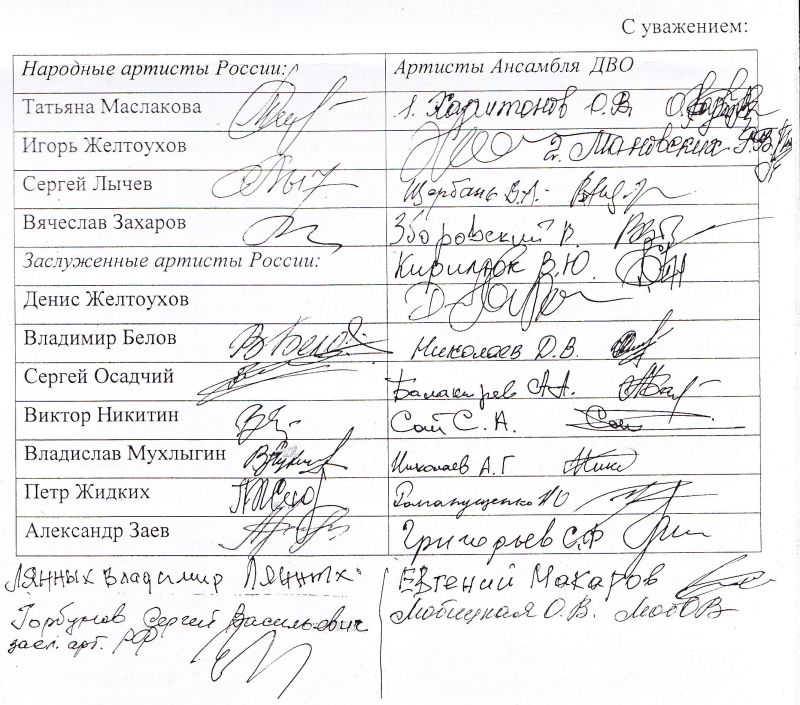 С уважением:
Народные артисты России: Артисты Ансамбля ДВО
Татьяна Маслакова 1. Харитонов О.В.
Игорь Желтоухов 2. Мановских Г.В.
Сергей Лычев Щербань В.А.
Вячеслав Захаров Зборовский В.
Заслуженные артисты России: Кирилюк В.Ю.
Денис Желтоухов
Владимир Белов В Бело Николаев Д.В.
Сергей Осадчий Балакирев А.А.
Виктор Никитин Сот С.А.
Владислав Мухлыгин Николаев А.Г
Петр Жидких Романущенко
Александр Заев Григорьев С.Ф
Лянных Владимир Лянных Евгений Макаров
Горбунов Сергей Васильевич Мобицкая О.В.
засл. арт. РФ